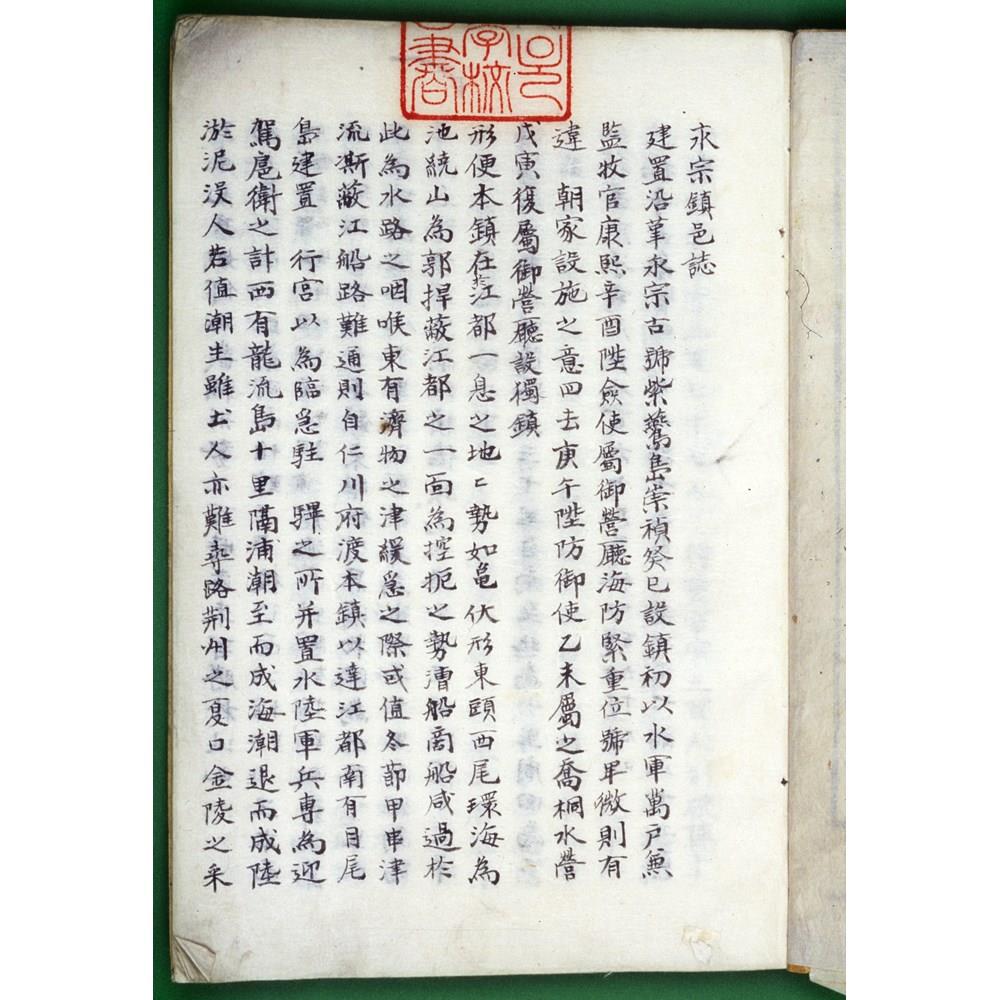 永宗鎮邑誌
建置沿革永宗古號紫鷰島崇禎癸巳設鎮初以水軍萬戶兼
監牧官康熙辛酉陞僉使屬御營廳海防緊重位號卑微則有
違 朝家設施之意四去庚午陞防御使乙未屬之喬桐水營
戊寅復屬御營廳設獨鎮
形便本鎮在江都一息之地〻勢如亀伏形東頭西尾環海為
池繞山為郭捍蔽江都之一面為控扼之勢漕船商船咸過於
此為水路之咽喉東有濟物之津緩急之際或值冬節甲串津
流凘蔽江船路難通則自仁川府渡本鎮以達江都南有月尾
島建置 行宮以為臨急駐 蹕之所并置水陸軍兵專為迎
駕扈衛之計西有龍流島十里隔浦潮至而成海潮退而成陸
淤泥沒人若值潮生雖土人亦難尋路荆州之夏口金陵之采